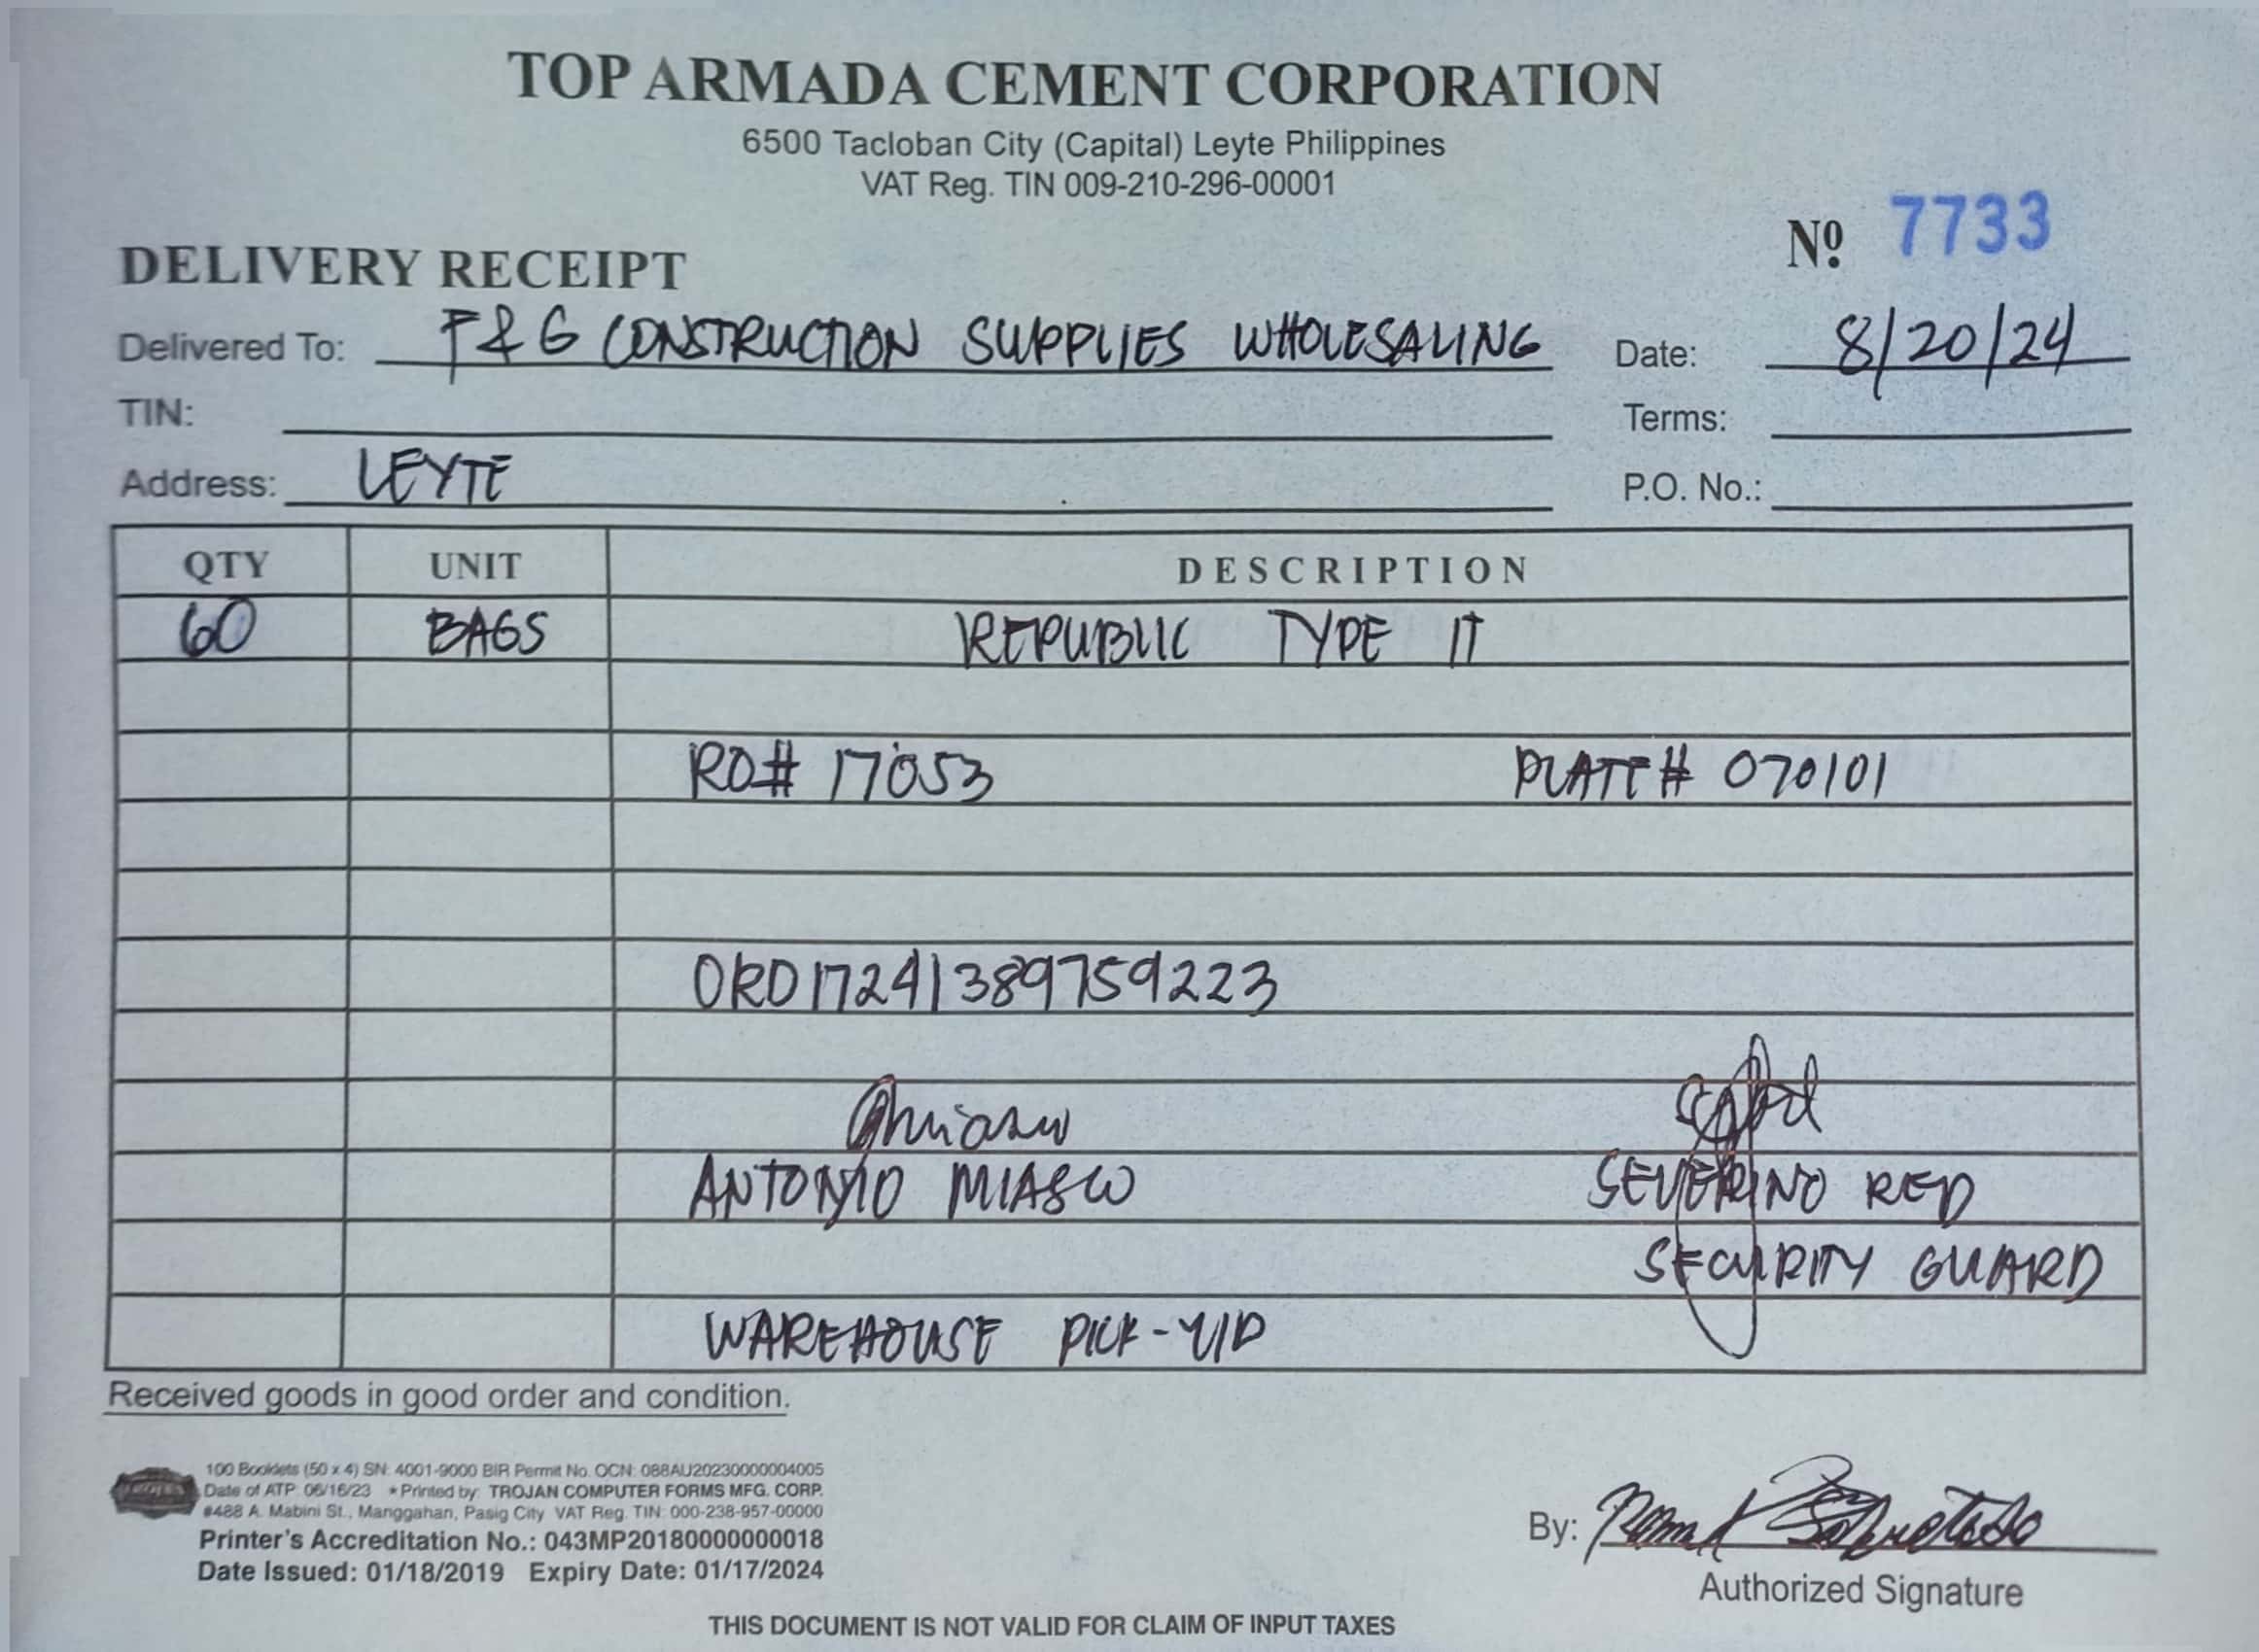 TOP ARMADA CEMENT CORPORATION
6500 Tacloban City (Capital) Leyte Philippines
VAT Reg. TIN 009-210-296-00001
Nº 7733
DELIVERY RECEIPT
Delivered To: F & G CONSTRUCTION SUPPLIES WHOLESALING Date: 8/20/24
TIN: Terms:
Address: LEYTE P.O. No.:
QTY UNIT DESCRIPTION
60 BAGS REPUBLIC TYPE IT
RO# 17053 PLATE# 070101
ORD1724138975 9223
ANTONIO MIASCO SEVERINO RED
SECURITY GUARD
WAREHOUSE PICK-UP
Received goods in good order and condition.
100 Booklets (50 x 4) SN: 4001-9000 BIR Permit No. OCN: 088AU20230000004005
Date of ATP: 06/16/23 * Printed by: TROJAN COMPUTER FORMS MFG. CORP.
#488 A. Mabini St., Manggahan, Pasig City VAT Reg. TIN: 000-238-957-00000
Printer's Accreditation No.: 043MP20180000000018
Date Issued: 01/18/2019 Expiry Date: 01/17/2024
By:
Authorized Signature
THIS DOCUMENT IS NOT VALID FOR CLAIM OF INPUT TAXES